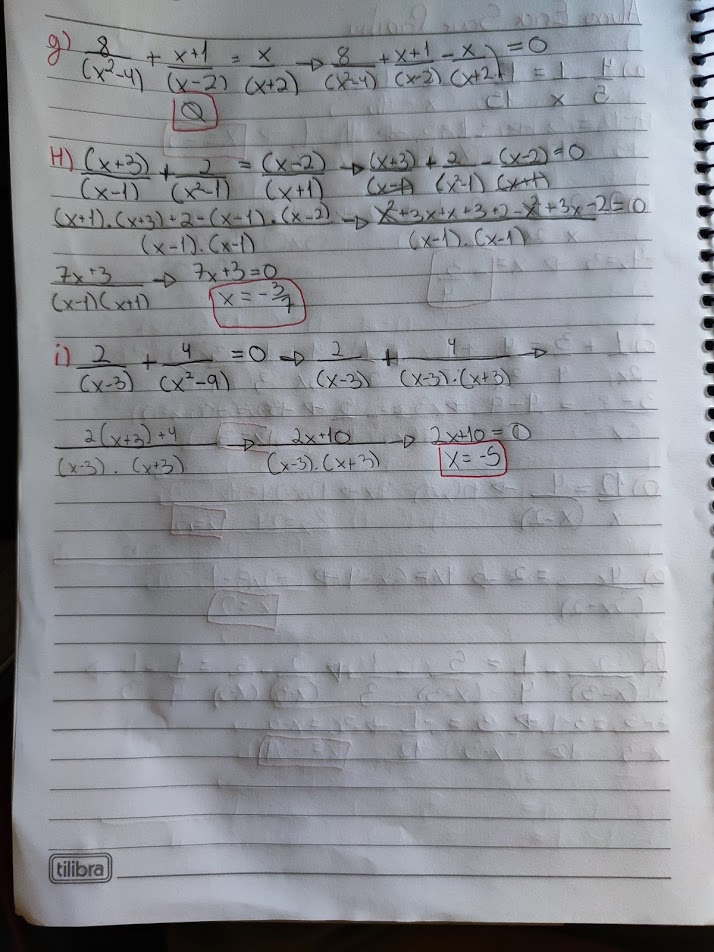 g) 8/(x²-4) + x+1/(x-2) = x/(x+2) → 8/(x²-4) + x+1/(x-2) - x/(x+2) = 0
Ø
H) (x+3)/(x-1) + 2/(x²-1) = (x-2)/(x+1) → (x+3)/(x-1) + 2/(x²-1) - (x-2)/(x+1) = 0
(x+1).(x+3)+2-(x-1).(x-2)/(x-1).(x-1) → x²+3x+x+3+2-x²+3x-2=0/(x-1).(x-1)
7x+3/(x-1)(x+1) → 7x+3=0
x = -3/7
i) 2/(x-3) + 4/(x²-9) = 0 → 2/(x-3) + 4/(x-3).(x+3) →
2(x+3)+4/(x-3).(x+3) → 2x+10/(x-3).(x+3) → 2x+10=0
x=-5
tilibra